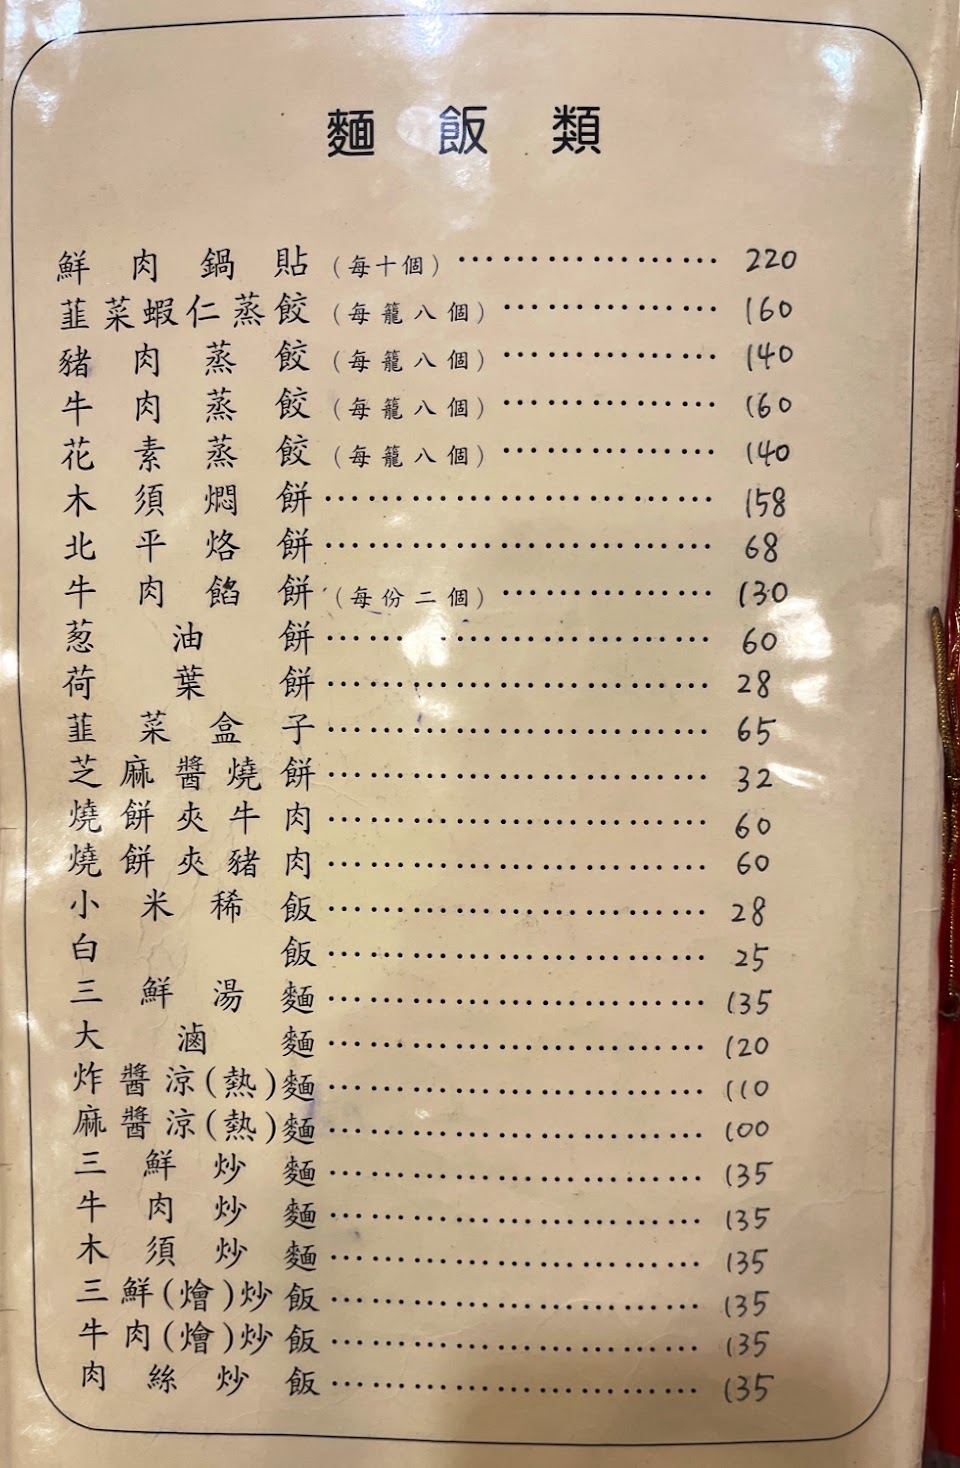 麵飯類
鮮肉鍋貼(每十個)………………220
韭菜蝦仁蒸餃(每籠八個)………………160
豬肉蒸餃(每籠八個)………………140
牛肉蒸餃(每籠八個)………………160
花素蒸餃(每籠八個)………………140
木須燜餅………………158
北平烙餅………………68
牛肉餡餅(每份二個)………………130
葱油餅………………60
荷葉餅………………28
韭菜盒子………………65
芝麻醬燒餅………………32
燒餅夾牛肉………………60
燒餅夾豬肉………………60
小米稀飯………………28
白飯………………25
三鮮湯麵………………135
大滷麵………………120
炸醬涼(熱)麵………………110
麻醬涼(熱)麵………………100
三鮮炒麵………………135
牛肉炒麵………………135
木須炒麵………………135
三鮮(燴)炒飯………………135
牛肉(燴)炒飯………………135
肉絲炒飯………………135